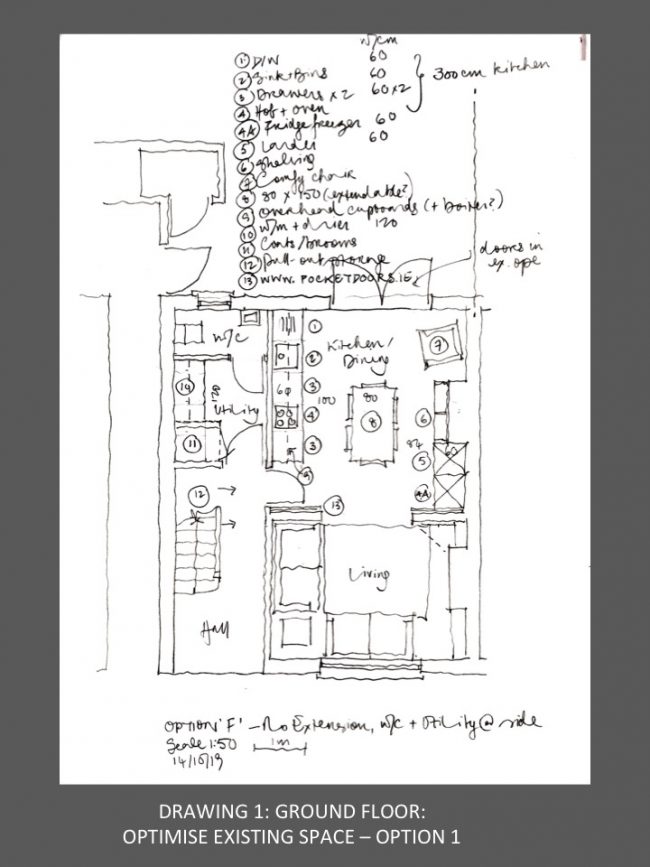 w/cm
① D/W 60
② Sink + Bins 60
③ Drawers x 2 60x2
④ Hob + oven
300cm kitchen
④A Fridge freezer 60
⑤ Larder 60
⑥ Shelving
⑦ Comfy chair
⑧ 80 x 150 (extendable?)
⑨ Overhead cupboards (+ boiler?)
⑩ w/m + drier 120
⑪ Coats/brooms
⑫ Pull-out storage
⑬ WWW.POCKETDOORS.IE
doors in
ex. ope
W/C
①
Kitchen/
Dining
⑦
②
⑩
120
Utility
60
③
100
80
④
⑧
⑥
84
⑪
③
⑤
⑨
④A
⑫
⑬
Living
Hall
OPTION 'F' – No Extension, w/c + Utility @ side
Scale 1:50 1m
14/10/19
DRAWING 1: GROUND FLOOR:
OPTIMISE EXISTING SPACE – OPTION 1